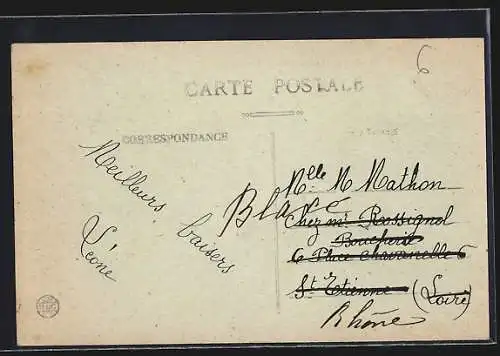 6
CARTE POSTALE
CORRESPONDANCE
Meilleurs baisers
Léone
Mlle M Mathon
Chez mr Rossignol
Boucherie
6 Place chavanelle 6
St Etienne (Loire)
Rhône